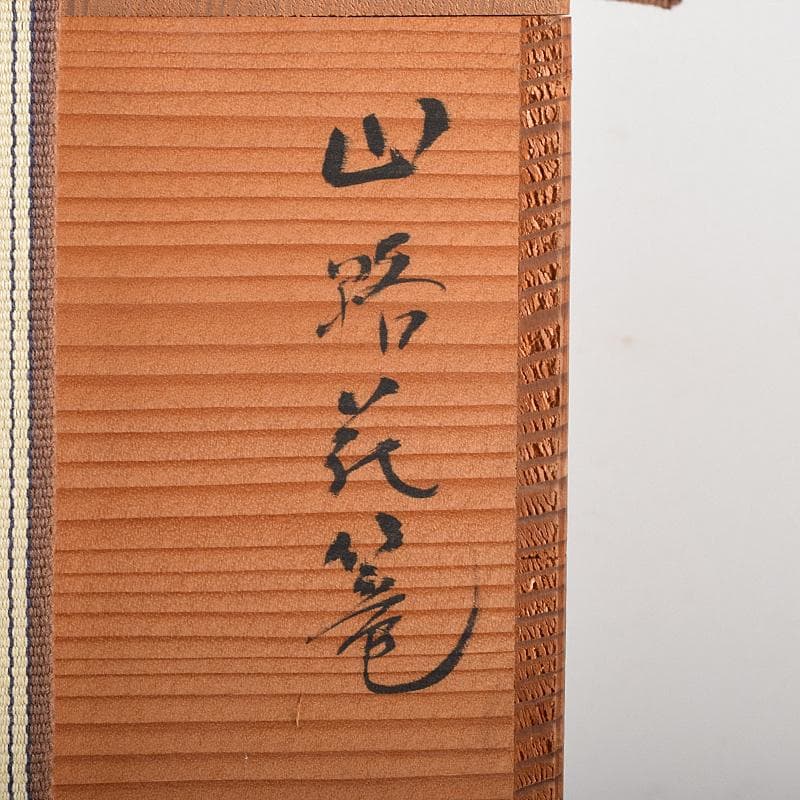 山路花篭